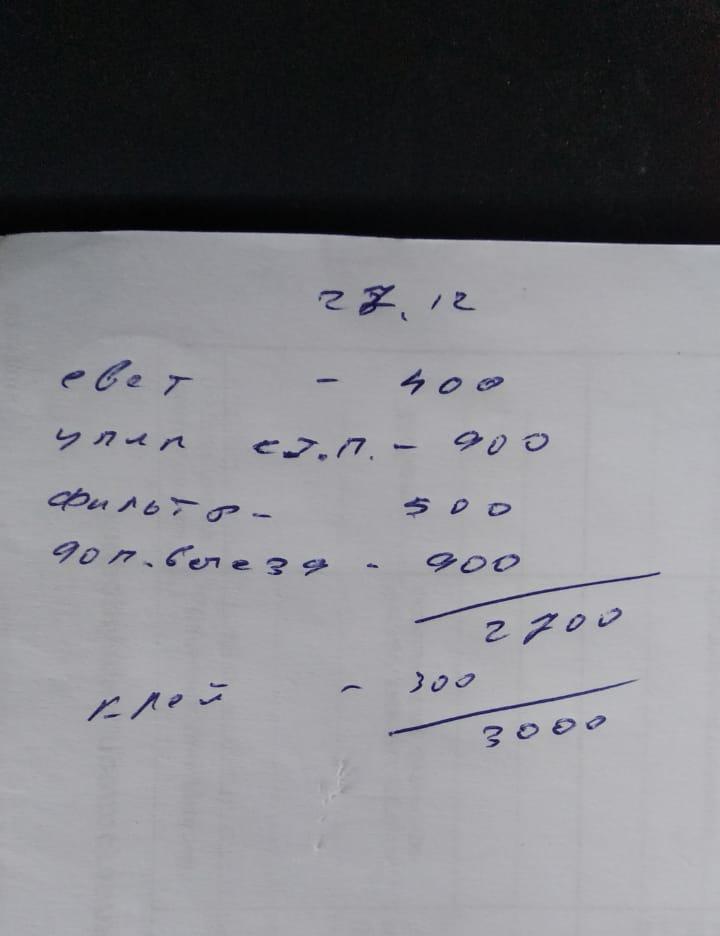 27.12
свет - 400
упла ст.п. - 900
фильтр - 500
доп. выезд - 900
2700
клей - 300
3000